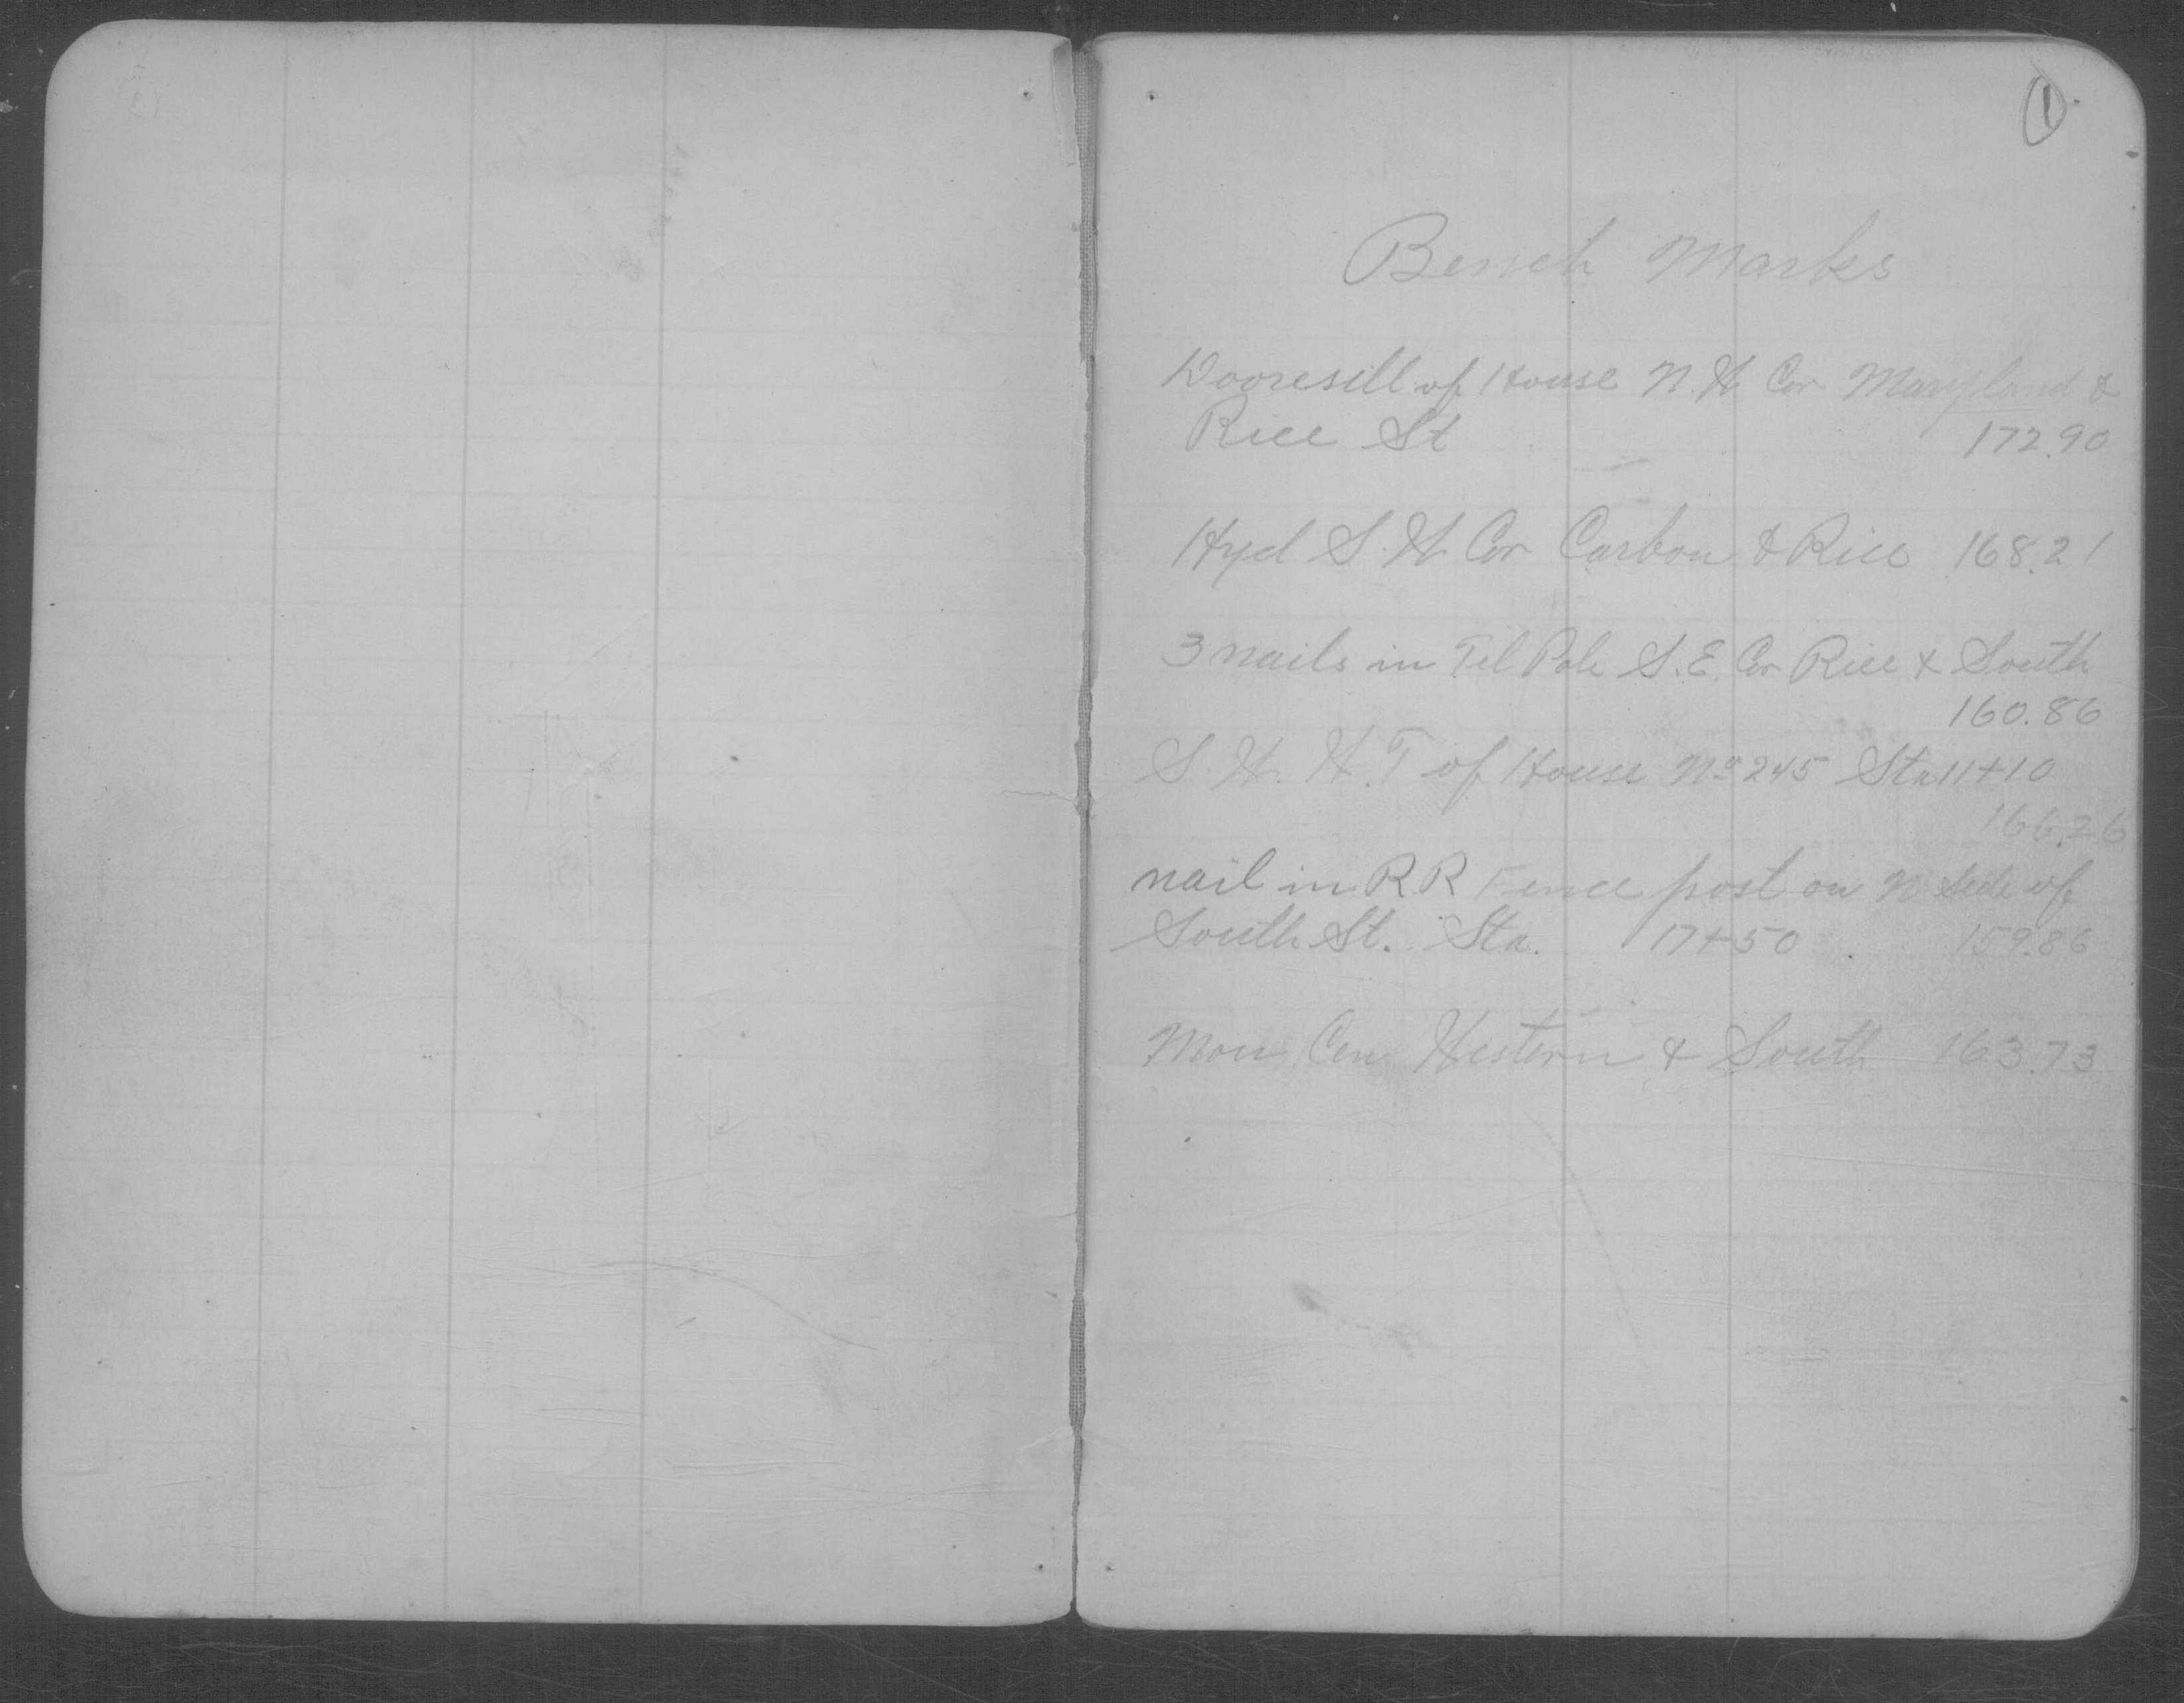 1
Bench Marks
Dooresill of House N.W Cor Maryland &
Rice St 172.90
Hyd S.W Cor Carbon & Rice 168.21
3 nails in Tel Pole S.E. Cor Rice & South
160.86
S.W. W.T of House No 245 Sta 11+10
166.26
nail in R R Fence post on N Side of
South St. Sta. 17+50 159.86
Mon Cen Western & South 163.73